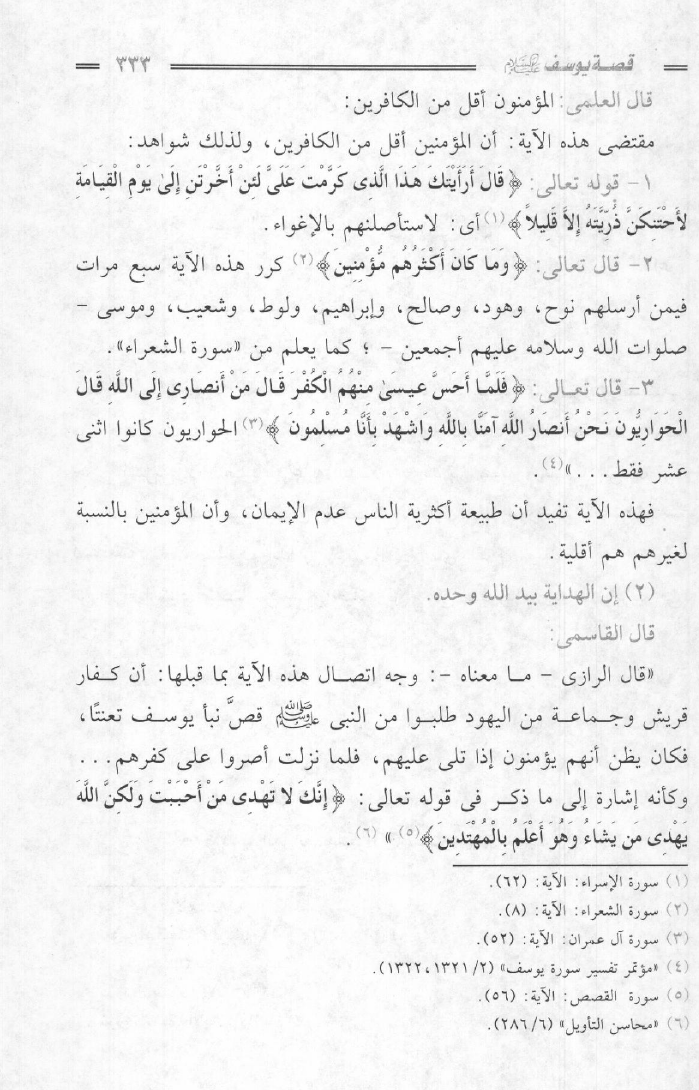 قصة يوسف عليه السلام ٣٣٣
قال العلمى: المؤمنون أقل من الكافرين:
مقتضى هذه الآية: أن المؤمنين أقل من الكافرين، ولذلك شواهد:
١- قوله تعالى: ﴿قَالَ أَرَأَيْتَكَ هَذَا الَّذِى كَرَّمْتَ عَلَىَّ لَئِنْ أَخَّرْتَنِ إِلَىٰ يَوْمِ الْقِيَامَةِ
لأَحْتَنِكَنَّ ذُرِّيَّتَهُ إِلاَّ قَلِيلاً﴾(١) أى: لاستأصلنهم بالإغواء.
٢- قال تعالى: ﴿وَمَا كَانَ أَكْثَرُهُم مُّؤْمِنِينَ﴾(٢) كرر هذه الآية سبع مرات
فيمن أرسلهم نوح، وهود، وصالح، وإبراهيم، ولوط، وشعيب، وموسى -
صلوات الله وسلامه عليهم أجمعين - ؛ كما يعلم من «سورة الشعراء».
٣- قال تعالى: ﴿فَلَمَّا أَحَسَّ عِيسَىٰ مِنْهُمُ الْكُفْرَ قَالَ مَنْ أَنصَارِى إِلَى اللَّهِ قَالَ
الْحَوَارِيُّونَ نَحْنُ أَنصَارُ اللَّهِ آمَنَّا بِاللَّهِ وَاشْهَدْ بِأَنَّا مُسْلِمُونَ﴾(٣) الحواريون كانوا اثنى
عشر فقط...»(٤).
فهذه الآية تفيد أن طبيعة أكثرية الناس عدم الإيمان، وأن المؤمنين بالنسبة
لغيرهم هم أقلية.
(٢) إن الهداية بيد الله وحده.
قال القاسمى:
«قال الرازى - ما معناه -: وجه اتصال هذه الآية بما قبلها: أن كفار
قريش وجماعة من اليهود طلبوا من النبى ﷺ قصَّ نبأ يوسف تعنتًا،
فكان يظن أنهم يؤمنون إذا تلى عليهم، فلما نزلت أصروا على كفرهم...
وكأنه إشارة إلى ما ذكر فى قوله تعالى: ﴿إِنَّكَ لا تَهْدِى مَنْ أَحْبَبْتَ وَلَكِنَّ اللَّهَ
يَهْدِى مَن يَشَاءُ وَهُوَ أَعْلَمُ بِالْمُهْتَدِينَ﴾(٥)» (٦).
(١) سورة الإسراء: الآية: (٦٢).
(٢) سورة الشعراء: الآية: (٨).
(٣) سورة آل عمران: الآية: (٥٢).
(٤) «مؤتمر تفسير سورة يوسف» (٢/ ١٣٢١، ١٣٢٢).
(٥) سورة القصص: الآية: (٥٦).
(٦) «محاسن التأويل» (٦/ ٢٨٦).